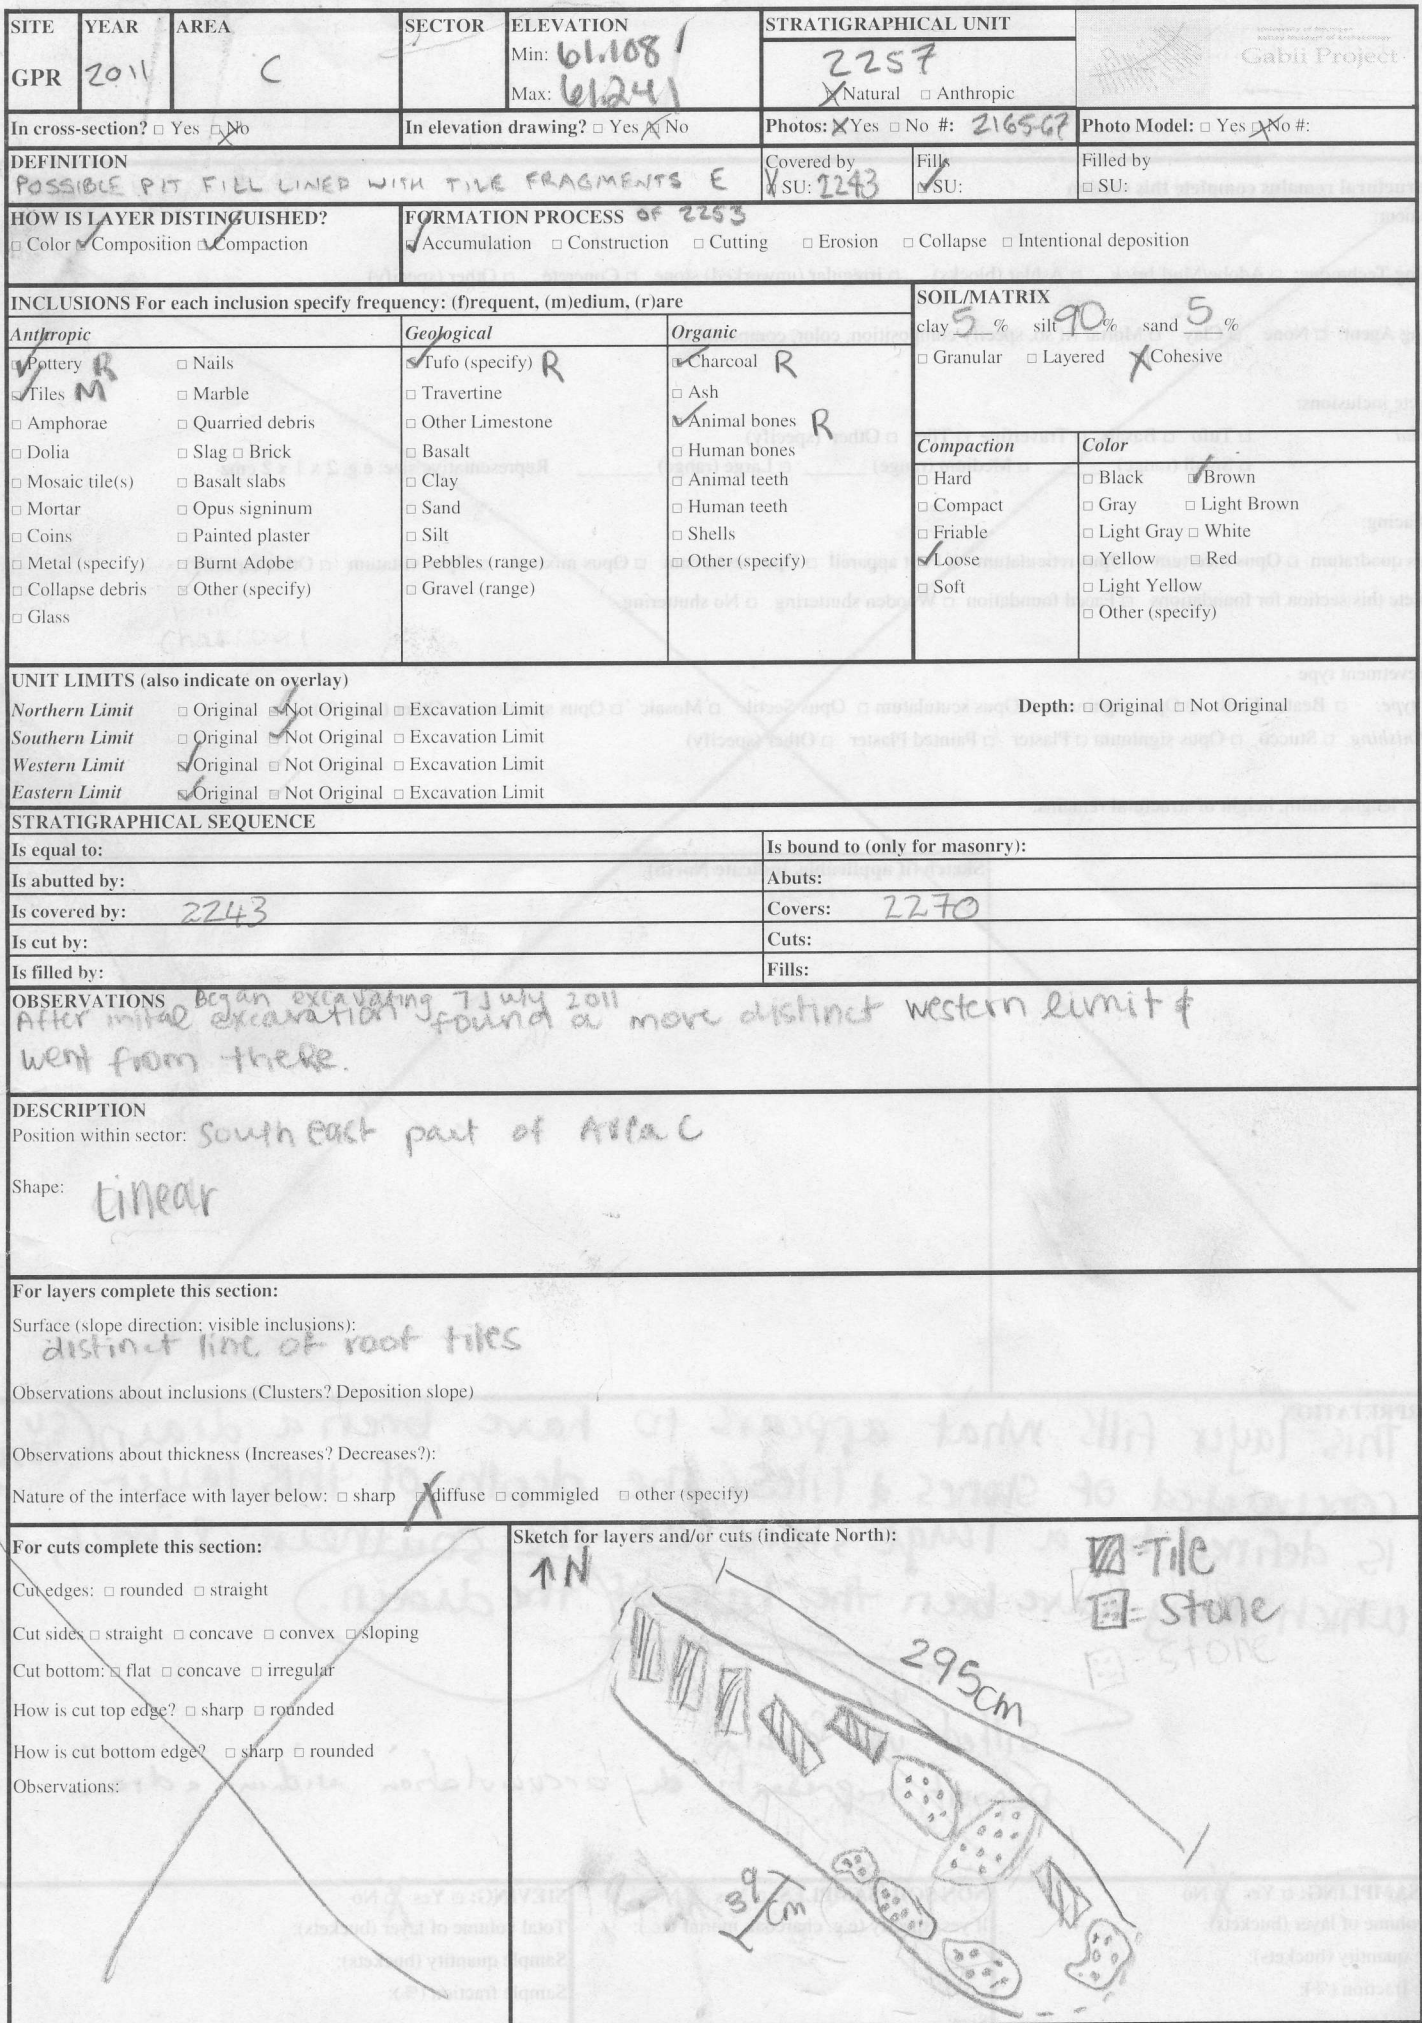 SITE YEAR AREA SECTOR ELEVATION STRATIGRAPHICAL UNIT
GPR 2011 C Min: 61.108 2257 Gabii Project
Max: 61.241 Natural □ Anthropic
In cross-section? □ Yes □ No In elevation drawing? □ Yes □ No Photos: Yes □ No #: 2165-67 Photo Model: □ Yes □ No #:
DEFINITION Covered by Fills Filled by
POSSIBLE PIT FILL LINED WITH TILE FRAGMENTS E SU: 2243 □ SU: □ SU:
OF 2253
HOW IS LAYER DISTINGUISHED? FORMATION PROCESS
□ Color □ Composition □ Compaction □ Accumulation □ Construction □ Cutting □ Erosion □ Collapse □ Intentional deposition
INCLUSIONS For each inclusion specify frequency: (f)requent, (m)edium, (r)are
Anthropic
□ Pottery R □ Nails
□ Tiles M □ Marble
□ Amphorae □ Quarried debris
□ Dolia □ Slag □ Brick
□ Mosaic tile(s) □ Basalt slabs
□ Mortar □ Opus signinum
□ Coins □ Painted plaster
□ Metal (specify) □ Burnt Adobe
□ Collapse debris □ Other (specify)
□ Glass
Geological
□ Tufo (specify) R
□ Travertine
□ Other Limestone
□ Basalt
□ Clay
□ Sand
□ Silt
□ Pebbles (range)
□ Gravel (range)
Organic
□ Charcoal R
□ Ash
□ Animal bones R
□ Human bones
□ Animal teeth
□ Human teeth
□ Shells
□ Other (specify)
SOIL/MATRIX
clay 5 % silt 90 % sand 5 %
□ Granular □ Layered Cohesive
Compaction
□ Hard
□ Compact
□ Friable
□ Loose
□ Soft
Color
□ Black □ Brown
□ Gray □ Light Brown
□ Light Gray □ White
□ Yellow □ Red
□ Light Yellow
□ Other (specify)
UNIT LIMITS (also indicate on overlay)
Northern Limit □ Original □ Not Original □ Excavation Limit Depth: □ Original □ Not Original
Southern Limit □ Original □ Not Original □ Excavation Limit
Western Limit □ Original □ Not Original □ Excavation Limit
Eastern Limit □ Original □ Not Original □ Excavation Limit
STRATIGRAPHICAL SEQUENCE
Is equal to: Is bound to (only for masonry):
Is abutted by: Abuts:
Is covered by: 2243 Covers: 2270
Is cut by: Cuts:
Is filled by: Fills:
OBSERVATIONS Began excavating 7 July 2011
After inital excavation found a more distinct western limit &
went from there.
DESCRIPTION
Position within sector: South East part of Area C
Shape: Linear
For layers complete this section:
Surface (slope direction; visible inclusions):
distinct line of roof tiles
Observations about inclusions (Clusters? Deposition slope)
Observations about thickness (Increases? Decreases?):
Nature of the interface with layer below: □ sharp □ diffuse □ commigled □ other (specify)
For cuts complete this section:
Cut edges: □ rounded □ straight
Cut sides □ straight □ concave □ convex □ sloping
Cut bottom: □ flat □ concave □ irregular
How is cut top edge? □ sharp □ rounded
How is cut bottom edge? □ sharp □ rounded
Observations:
Sketch for layers and/or cuts (indicate North):
↑N
=Tile
= Stone
295cm
39 cm